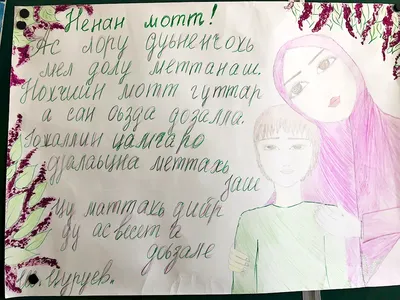 Ненан мотт!
Ас лору дуьненчохь
мел долу меттанаш.
Нохчийн мотт гуттар
а сан оьзда дозалла.
Ӏожаллин цамгаро
дӀалаьцна меттахь
Ӏаш
Цу маттахь дийр
ду ас весет а
доьзале
Цуруев.